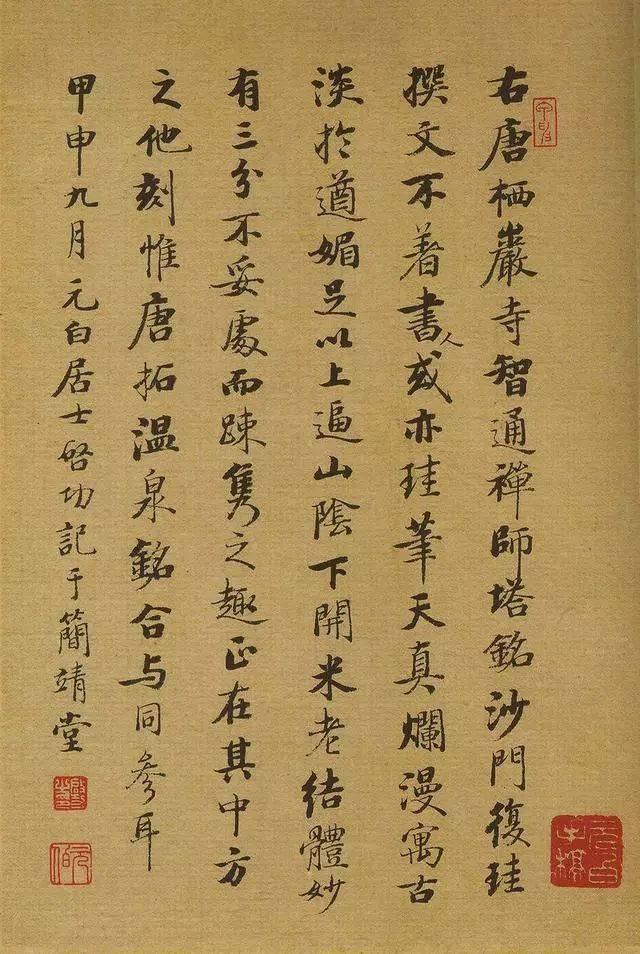 右唐栖巖寺智通禪師塔銘沙門復珪
撰文不著書人或亦珪筆天真爛漫寓古
淡於遒媚足以上逼山陰下開米老結體妙
有三分不妥處而踈隽之趣正在其中方
之他刻惟唐拓温泉銘合与同參耳
甲申九月元白居士啓功記于簡靖堂
啓功
元白